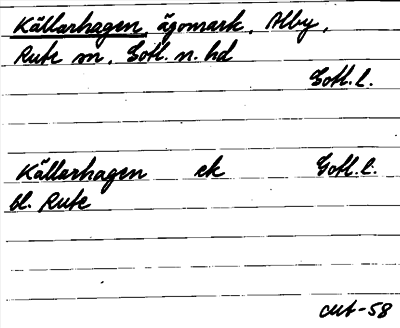 Källarhagen, ägomark, Alby,
Rute sn, Gotl. n. hd
Gotl. l.
Källarhagen ek Gotl. l.
bl. Rute
cut-58